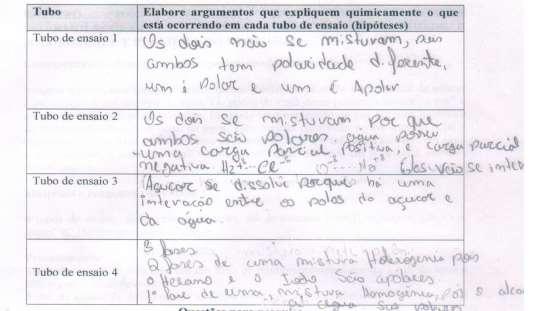 Tubo
Elabore argumentos que expliquem quimicamente o que
está ocorrendo em cada tubo de ensaio (hipóteses)
Tubo de ensaio 1
Os dois não se misturam, pois
ambos tem polaridade diferente,
um é Polar e um é Apolar
Tubo de ensaio 2
Os dois se misturam por que
ambos são polares, água possui
uma carga parcial positiva, e carga parcial
negativa.
Tubo de ensaio 3
Açucar se dissolve porque há uma
interação entre os polos do açucar e
da água.
Tubo de ensaio 4
3 fases
2 fases de uma mistura Heterogenia pois
o Hexano e o Iodo São apolares
1º fase de uma, mistura Homogênia, pois o alcoo
a água